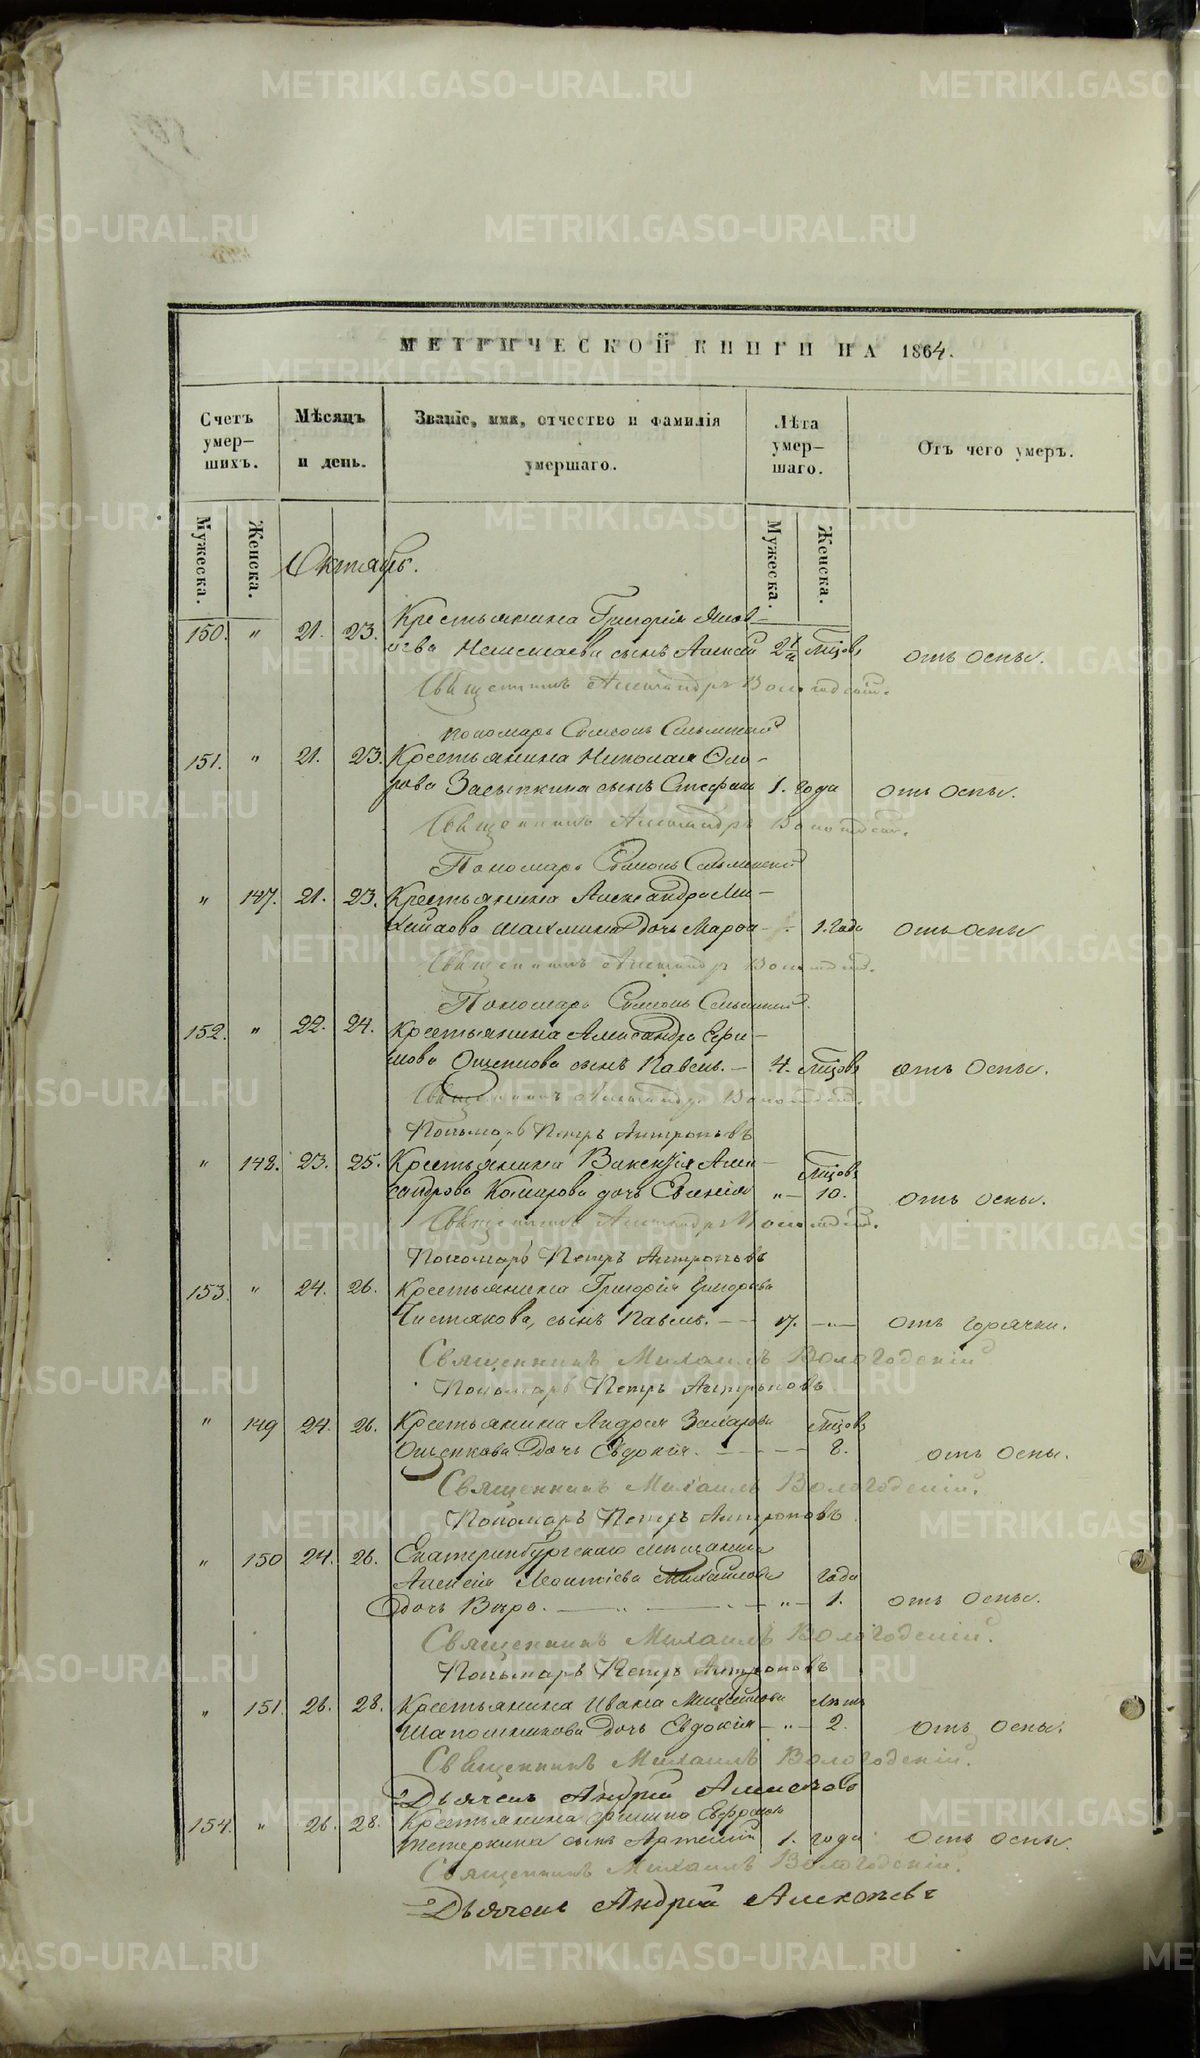 МЕТРИЧЕСКОЙ КНИГИ НА 1864.
Счетъ умер–шихъ.
Мѣсяцъ и день.
Званіе, имя, отчество и фамилія умершаго.
Лѣта умер–шаго.
Отъ чего умеръ.
Мужеска. Женска. Мужеска. Женска.
Октябрь.
150. " 21. 23. Крестьянина Григорія Яков–
лева сынъ Алексѣй 2½ мѣсяцовъ отъ оспы.
Священникъ Александръ Вологодскій.
Пономарь Симеонъ
151. " 21. 23. Крестьянина Николая Ѳедо–
рова Засыпкина сынъ Стефанъ 1. года отъ оспы.
Священникъ Александръ Вологодскій.
Пономарь Симеонъ
" 147. 21. 23. Крестьянина Александра Ми–
хайлова дочь Марѳа 1. года отъ оспы
Священникъ Александръ Вологодскій.
Пономарь Симеонъ
152. " 22. 24. Крестьянина Александра Ефи–
мова Ощепкова сынъ Павелъ. – 4. мѣсяцовъ отъ оспы.
Священникъ Александръ Вологодскій.
Пономарь Петръ Антроповъ
" 148. 23. 25. Крестьянина Алек–
сандрова Комарова дочь Евгенія " – мѣсяцовъ 10. отъ оспы.
Священникъ Александръ Вологодскій.
Пономарь Петръ Антроповъ
153. " 24. 26. Крестьянина Григорія Григорьева
Чистякова, сынъ Павелъ. – – 17. – " – отъ горячки.
Священникъ Михаилъ Вологодскій
Пономарь Петръ Антроповъ
" 149 24. 26. Крестьянина Андрея Захарова мѣсяцовъ
Ощепкова дочь Евдокія. – – – – 8. отъ оспы.
Священникъ Михаилъ Вологодскій.
Пономарь Петръ Антроповъ
" 150 24. 26. Екатеринбургскаго мѣщанина
Алексѣя Леонтіева Михайлова года
дочь Вѣра. – " – – " – 1. отъ оспы.
Священникъ Михаилъ Вологодскій.
Пономарь Петръ Антроповъ
" 151. 26. 28. Крестьянина Ивана лѣтъ
Шапошникова дочь Евдокія – " – 2. отъ оспы.
Священникъ Михаилъ Вологодскій.
Дьячекъ Андрей Алексѣевъ
154. " 26. 28. Крестьянина Филипа
Тетеркина сынъ Артемій 1. года отъ оспы.
Священникъ Михаилъ Вологодскій.
Дьячекъ Андрей Алексѣевъ
METRIKI.GASO-URAL.RU